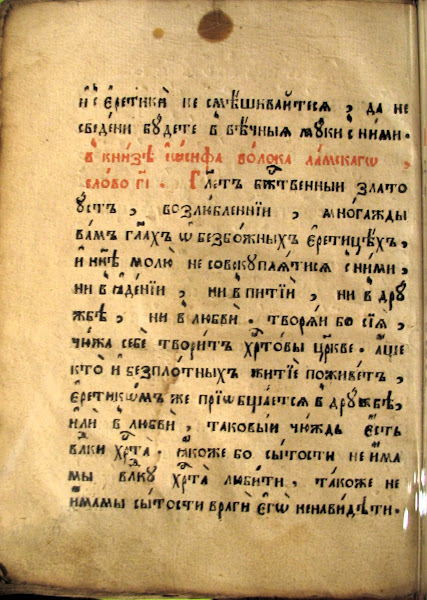 и҆ с̾ є҆ретикѝ не смѣ́шивайтеся, да не
сведени бꙋ́дете в вѣ́чныꙗ мꙋки с̾ ними.
в кни́зѣ і҆ѡ́сифа во́лока ла́мскагѡ,
сло́во г҃і. Гл҃етъ бж҃твенный злато
ꙋстъ, возлю́бленнїи, мно́гажды
ва́мъ гл҃ахъ ѡ҆ безбо́жныхъ є҆ретицѣ́хъ,
и҆ нн҃ѣ молю̀ не совокꙋпля́тися с̾ ни́ми,
ни в̾ ꙗ҆де́нїи, ни в питїѝ, ни в̾ дрꙋ́
жбѣ, ни в̾ любви̇. творѧ́й бо сїѧ̀,
чю́жа себѐ твори́тъ хр҃то́вы цр҃кве. а҆́ще
кто̀ и҆ безпло́тныхъ житїѐ поживе́тъ,
є҆ретикѡ́мъ же прїѡбща́ется в̾ дрꙋ́жбѣ,
и҆лѝ в̾ любвѝ, таковы́й чю́ждь є҆́сть
влⷣки хр҃та̀. ꙗ҆́коже бо сы́тости не и҆́ма
мы влⷣкꙋ хр҃та̀ люби́ти, та́коже не
и҆́мамы сы́тости врагѝ є҆гѡ̀ ненави́дѣти.